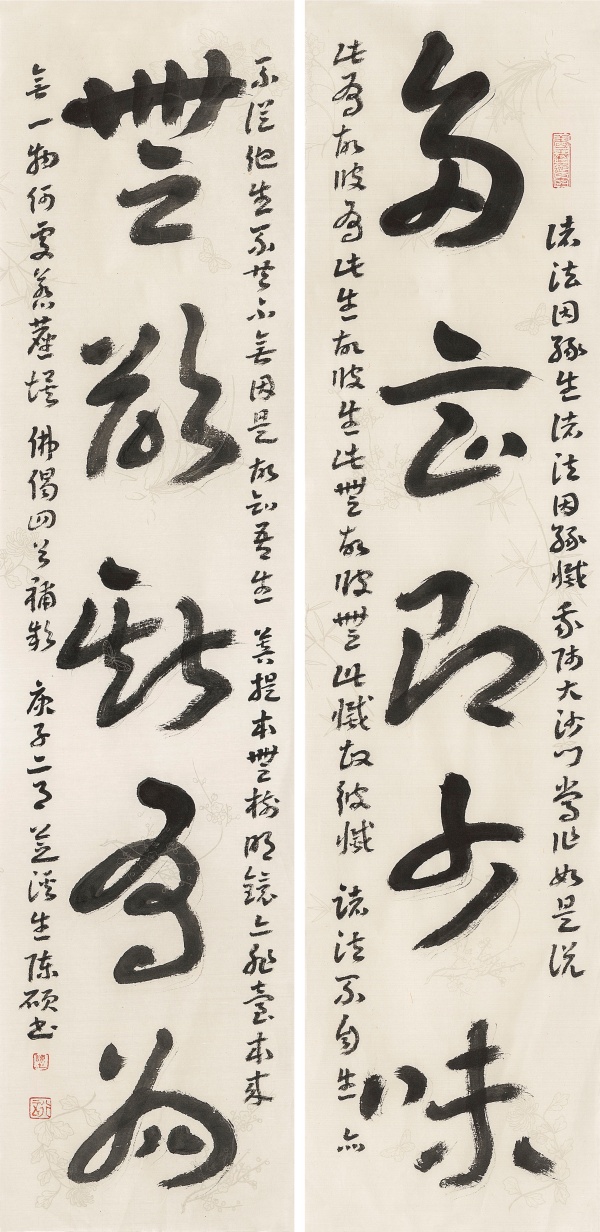 諸法因緣生諸法因緣滅我師大沙門常作如是說
多言即少味
此有故彼有此生故彼生此無故彼無此滅故彼滅 諸法不自生亦
不從他生不共不無因是故知無生 菩提本無樹明鏡亦非臺本來
無欲斯有為
無一物何處惹塵埃 佛偈四首補款 庚子二月芝溪生陳碩書